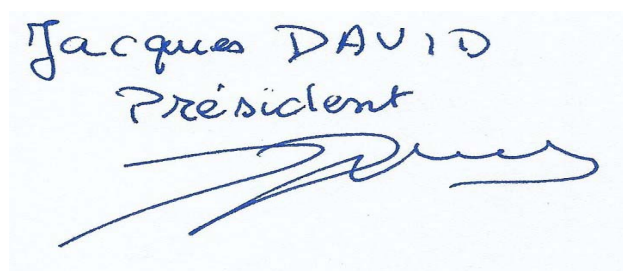 Jacques DAVID
Président